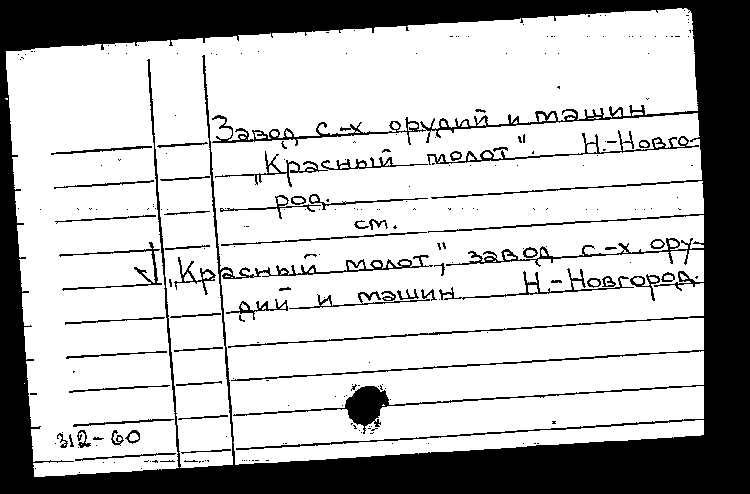 Завод с.-х. орудий и машин
„Красный молот". Н.-Новго-
род.
см.
„Красный молот", завод с.-х. ору-
дий и машин. Н.-Новгород.
312-60